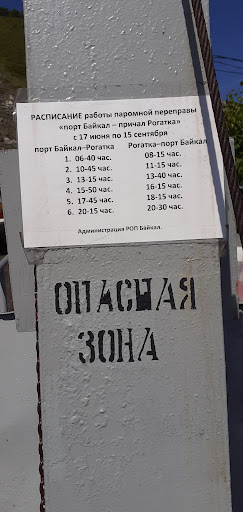 РАСПИСАНИЕ работы паромной переправы
«порт Байкал – причал Рогатка»
с 17 июня по 15 сентября
порт Байкал–Рогатка Рогатка–порт Байкал
1. 06-40 час. 08-15 час.
2. 10-45 час. 11-15 час.
3. 13-15 час. 13-40 час.
4. 15-50 час. 16-15 час.
5. 17-45 час. 18-15 час.
6. 20-15 час. 20-30 час.
Администрация РОП Байкал.
ОПАСНАЯ
ЗОНА